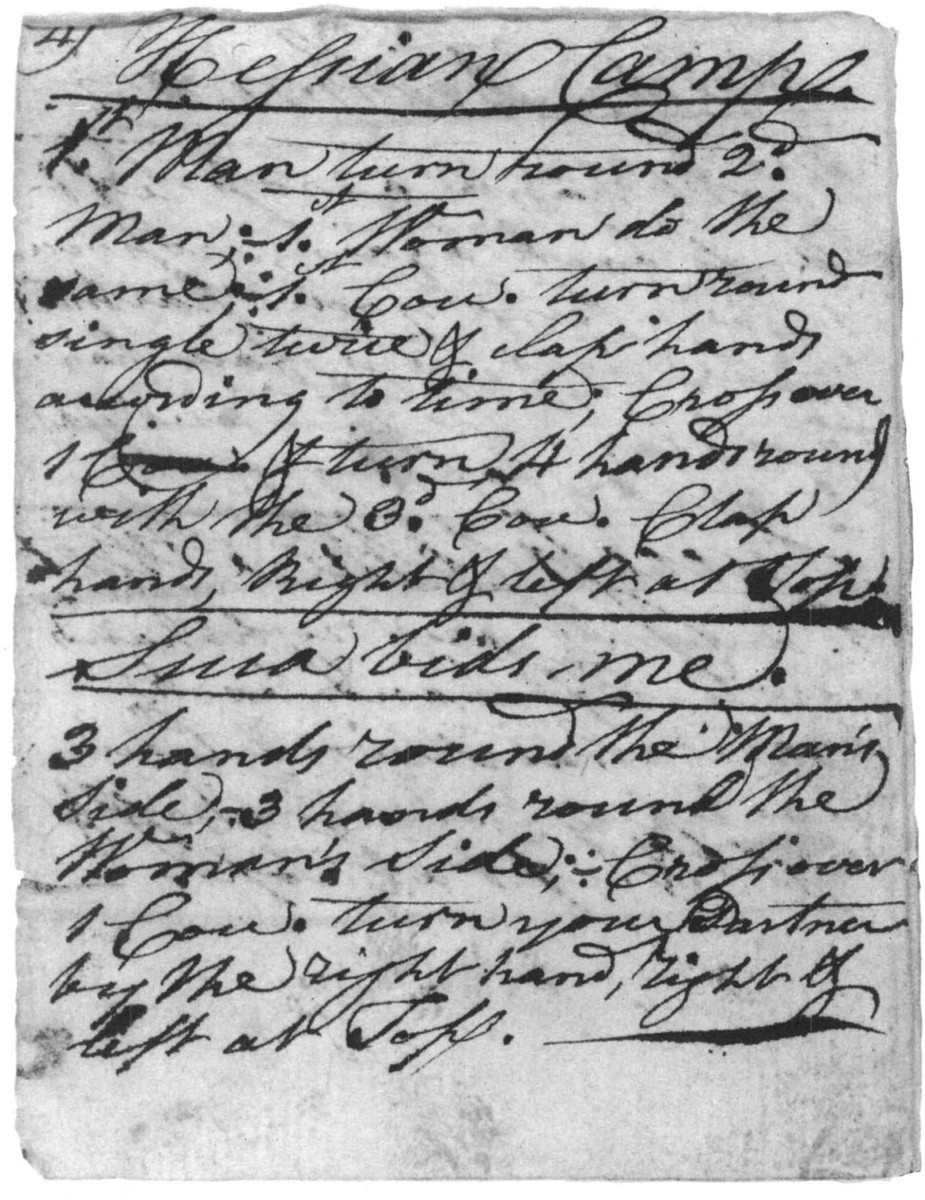 4)
Hessian Camp.
1st. Man turn round 2d.
Man, :- 1st. Woman do the
same :- 1st. Cou. turn round
single twice & clap hands
according to time, Cross over
1 Cou. & turn, 4 hands round
with the 3d. Cou. Clap
hands, Right & left at Top.
bids me.
3 hands round the Man's
Side, :- 3 hands round the
Woman's Side, :- Cross over
1 Cou. turn your Partner
by the right hand, right &
left at Top.